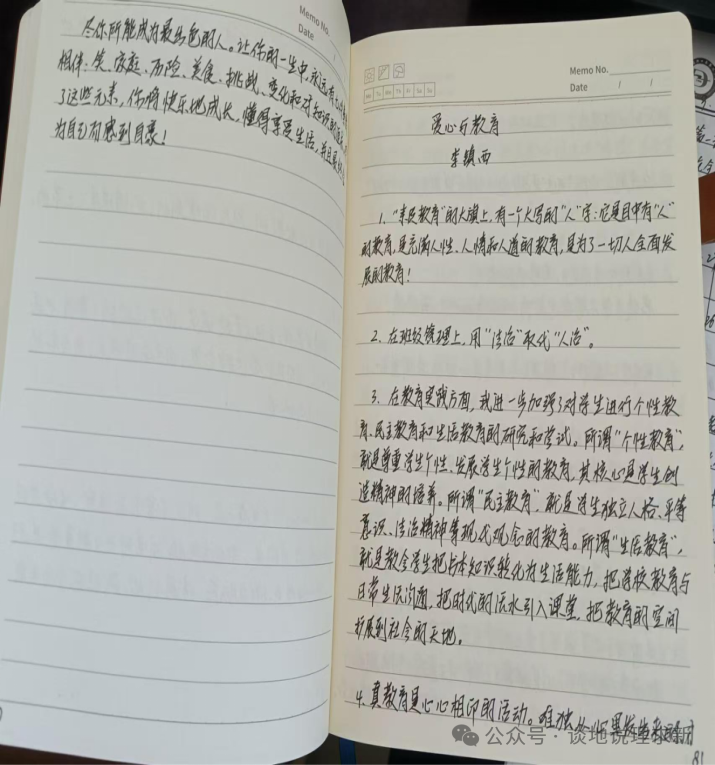 Memo No.
Date / /
尽你所能成为最出色的人。让你的一生中，永远有
相伴：笑、家庭、历险、美食、挑战、变化和对知识的
了这些元素，你将快乐地成长，懂得享受生活，并且
为自己而感到自豪！
Memo No.
Date / /
Mo Tu We Th Fr Sa Su
爱心与教育
李镇西
1、“素质教育”的大旗上，有一个大写的“人”字：它是目中有“人”
的教育，是充满人性、人情和人道的教育，是为了一切人全面发
展的教育！
2、在班级管理上，用“法治”取代“人治”。
3、在教育实践方面，我进一步加强了对学生进行个性教
育、民主教育和生活教育的研究和尝试。所谓“个性教育”，
就是尊重学生个性、发展学生个性的教育，其核心是学生创
造精神的培养。所谓“民主教育”，就是学生独立人格、平等
意识、法治精神等现代观念的教育。所谓“生活教育”，
就是教会学生把书本知识转化为生活能力，把学校教育与
日常生活沟通，把时代的活水引入课堂，把教育的空间
扩展到社会的天地。
4、真教育是心心相印的活动。唯独从心里发出来的
公众号·谈地说理
81